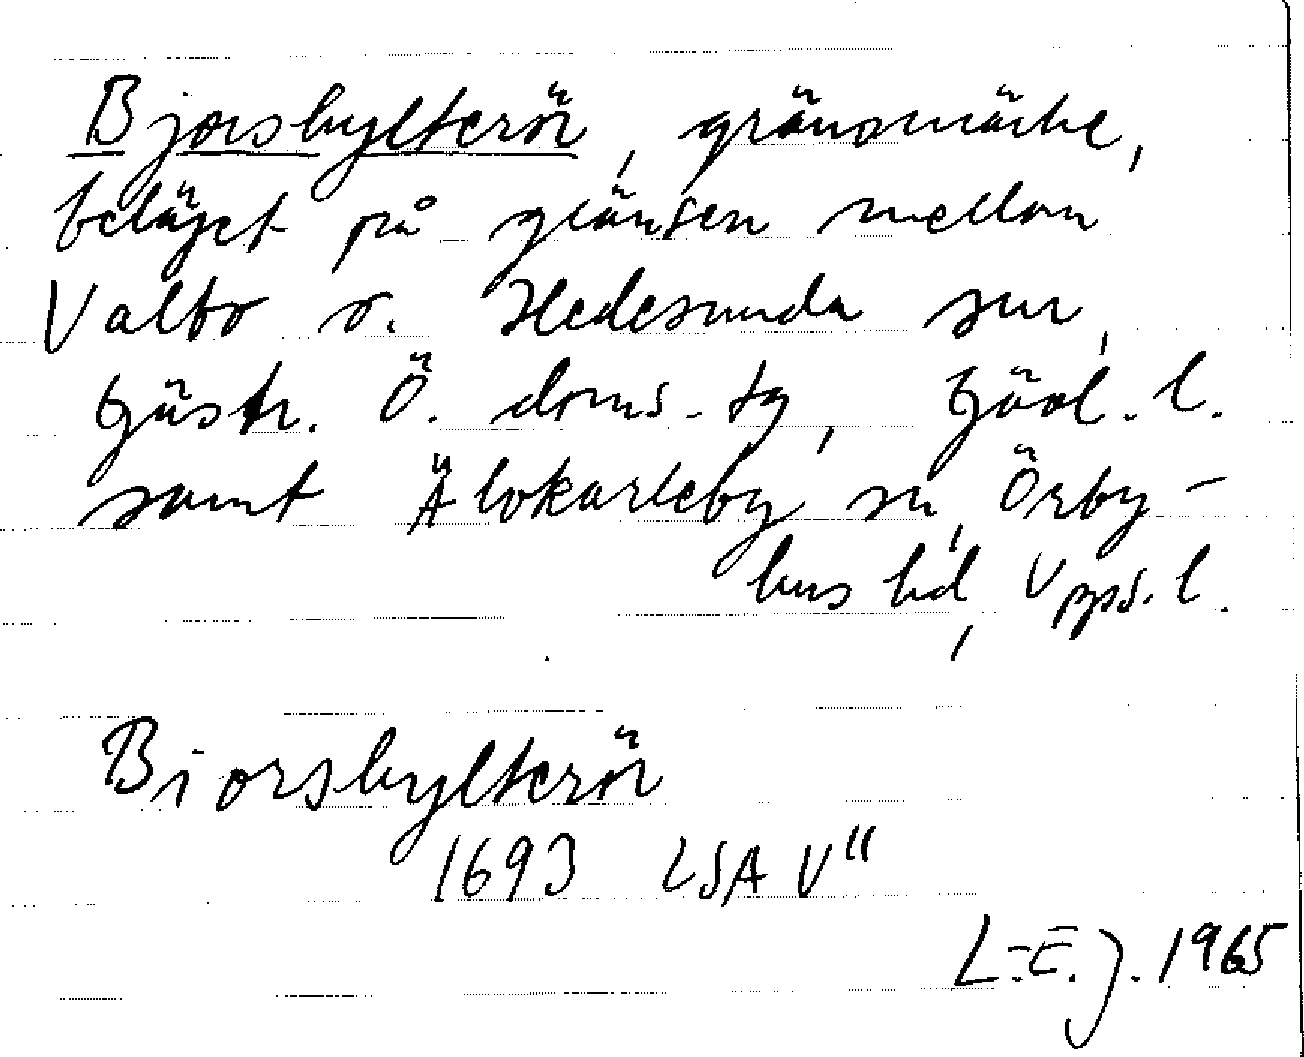 Bjorsbylterör, gränsmärke,
beläget på gränsen mellan
Valbo o. Hedesunda snr,
Gästr. Ö. doms.-tg, Gävl. l.
samt Älvkarleby sn, Örby-
hus hd, Upps. l.
Biorsbylterör
1693 LSA V"
L.-E. J. 1965